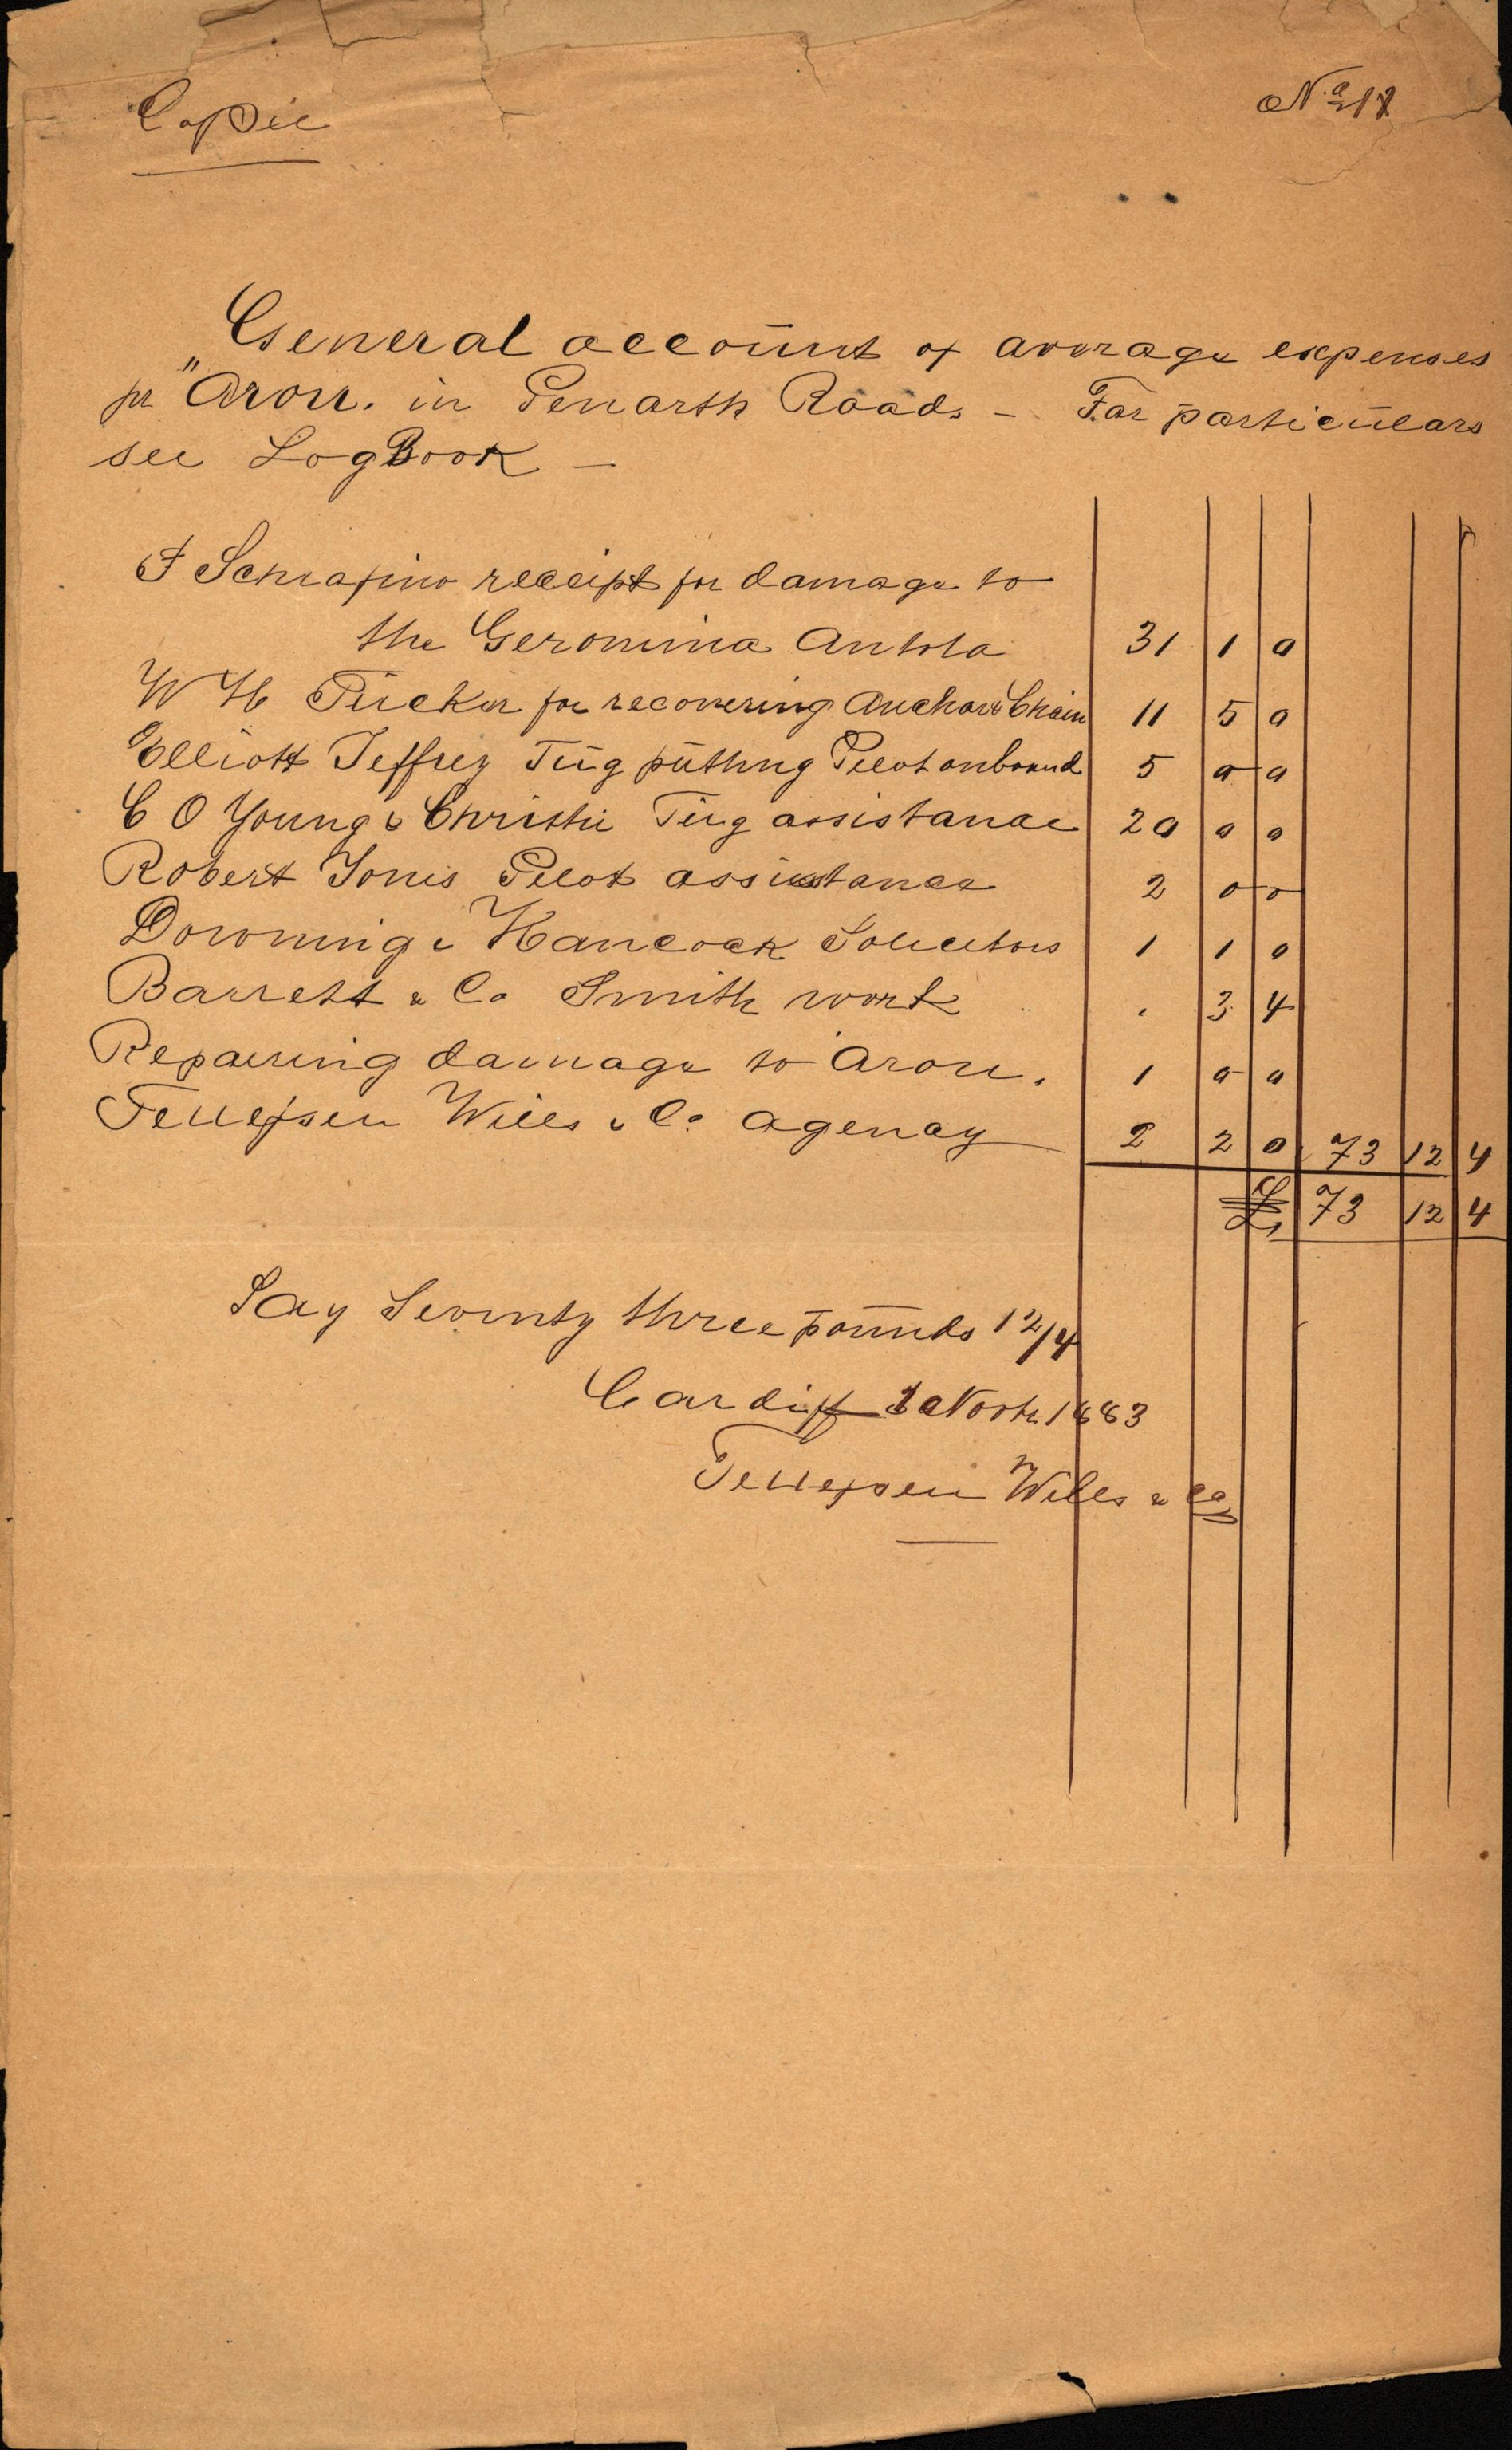 Copie
General account of average expenses
pr "Aron. in Penarth Roads - For particulars
see LogBook -
F Schiafino receipt for damage to
the Geromina Antola 31 1 0
W H Tucker for recovering Anchor & Chain 11 5 0
Elliott Jeffrey Tug putting Pilot onboard 5 0 0
C O Young & Christie Tug assistance 20 0 0
Robert Jones Pilot assistance 2 0 0
Downing & Hancock Solicitors 1 1 0
Barrett & Co Smith work . 3 4
Repairing damage to Aron. 1 0 0
Tellefsen Wills & Co agency 2 2 0 73 12 4
£ 73 12 4
Say Seventy three pounds 12/4
Cardiff Novbr 1883
Tellefsen Wills & Co